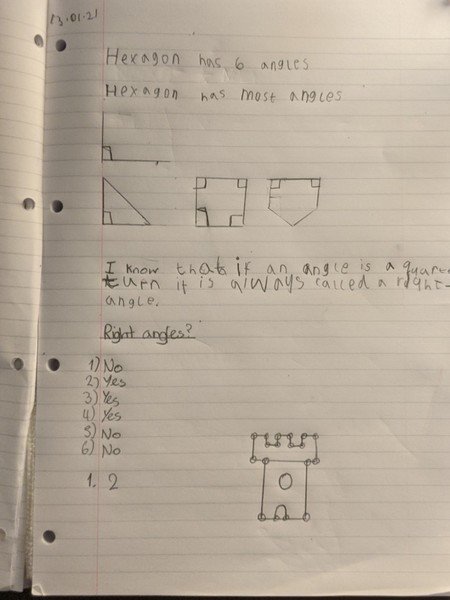 13.01.21
Hexagon has 6 angles
Hexagon has most angles
I know that if an angle is a quare
turn it is always called a right-
angle.
Right angles?
1) No
2) Yes
3) Yes
4) Yes
5) No
6) No
1. 2